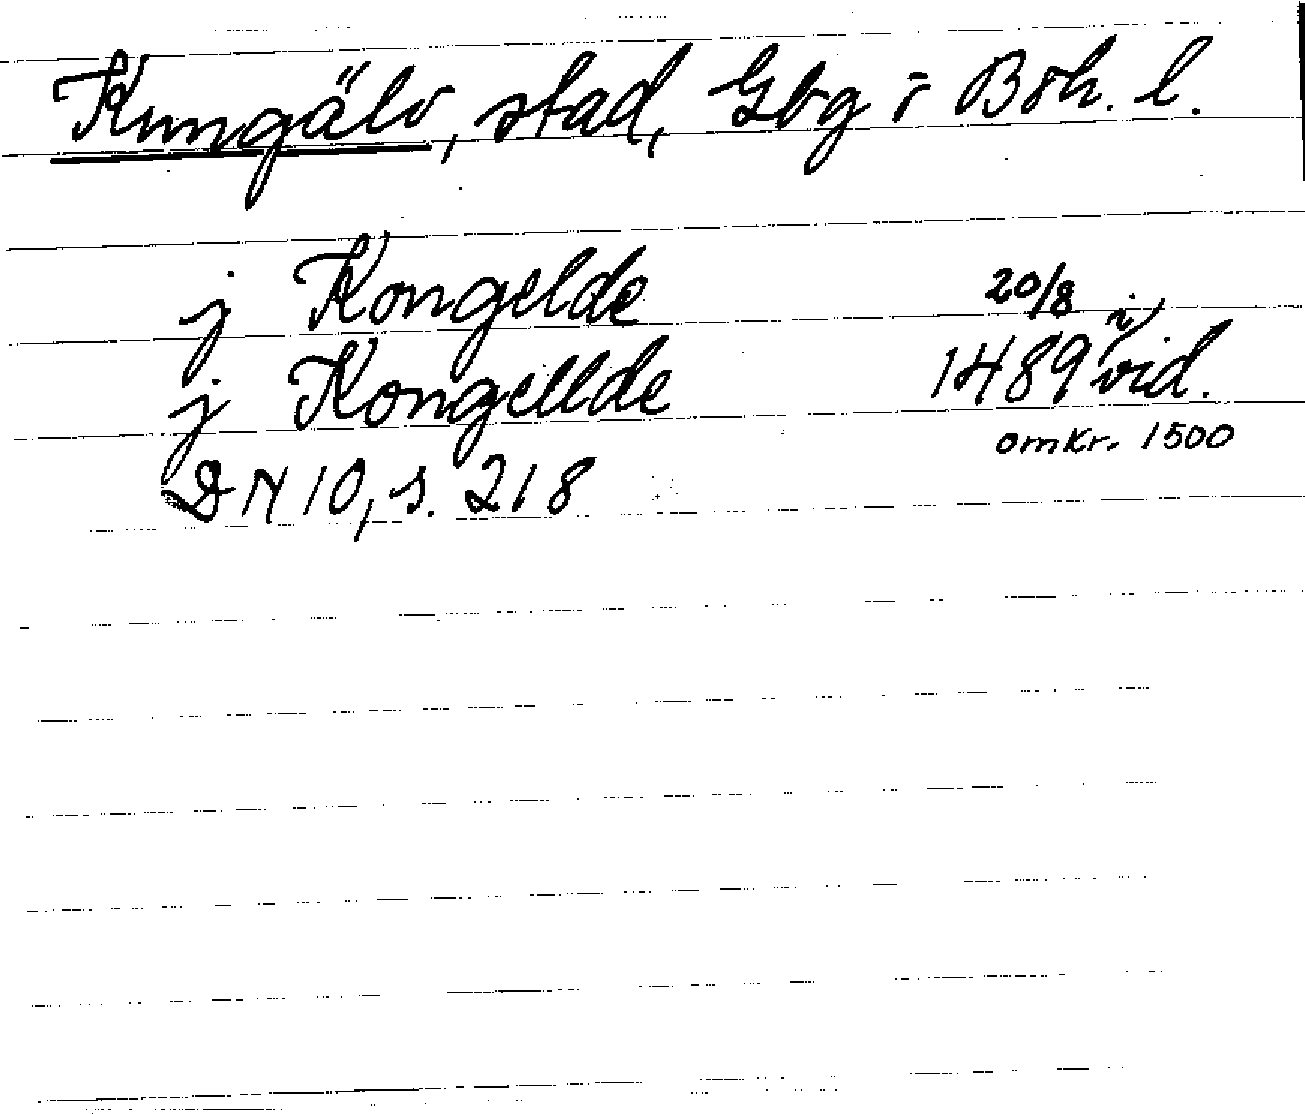 Kungälv, stad, Gbg o Boh. l.
j Kongelde 20/8
j Kongellde 1489 i vid.
DN 10, s. 218 omkr. 1500